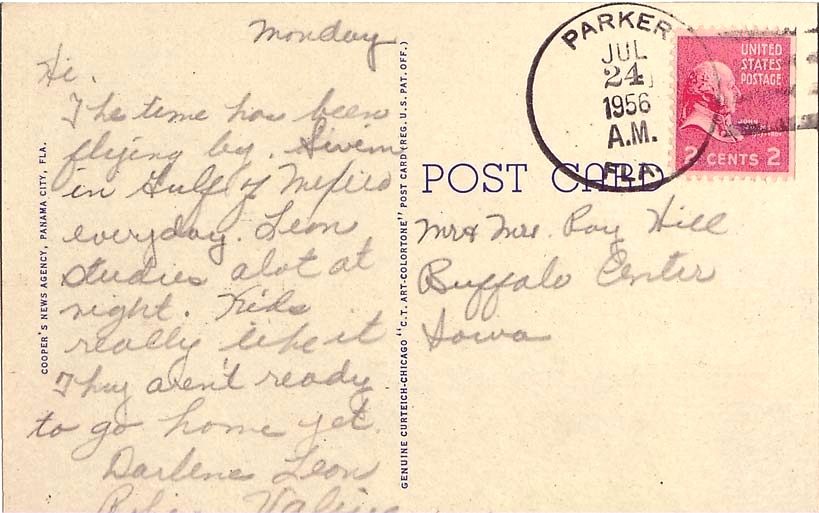 Monday
Hi.
The time has been
flying by. Swim
in Gulf of Mexico
everyday. Leon
studies alot at
night. Kids
really like it
They aren't ready
to go home yet.
Darlene Leon
COOPER'S NEWS AGENCY, PANAMA CITY, FLA.
GENUINE CURTEICH-CHICAGO "C.T. ART-COLORTONE" POST CARD (REG. U.S. PAT. OFF.)
POST CARD
PARKER
JUL
24
1956
A.M.
FLA.
UNITED
STATES
POSTAGE
JOHN
2 CENTS 2
Mr & Mrs. Roy Hill
Buffalo Center
Iowa